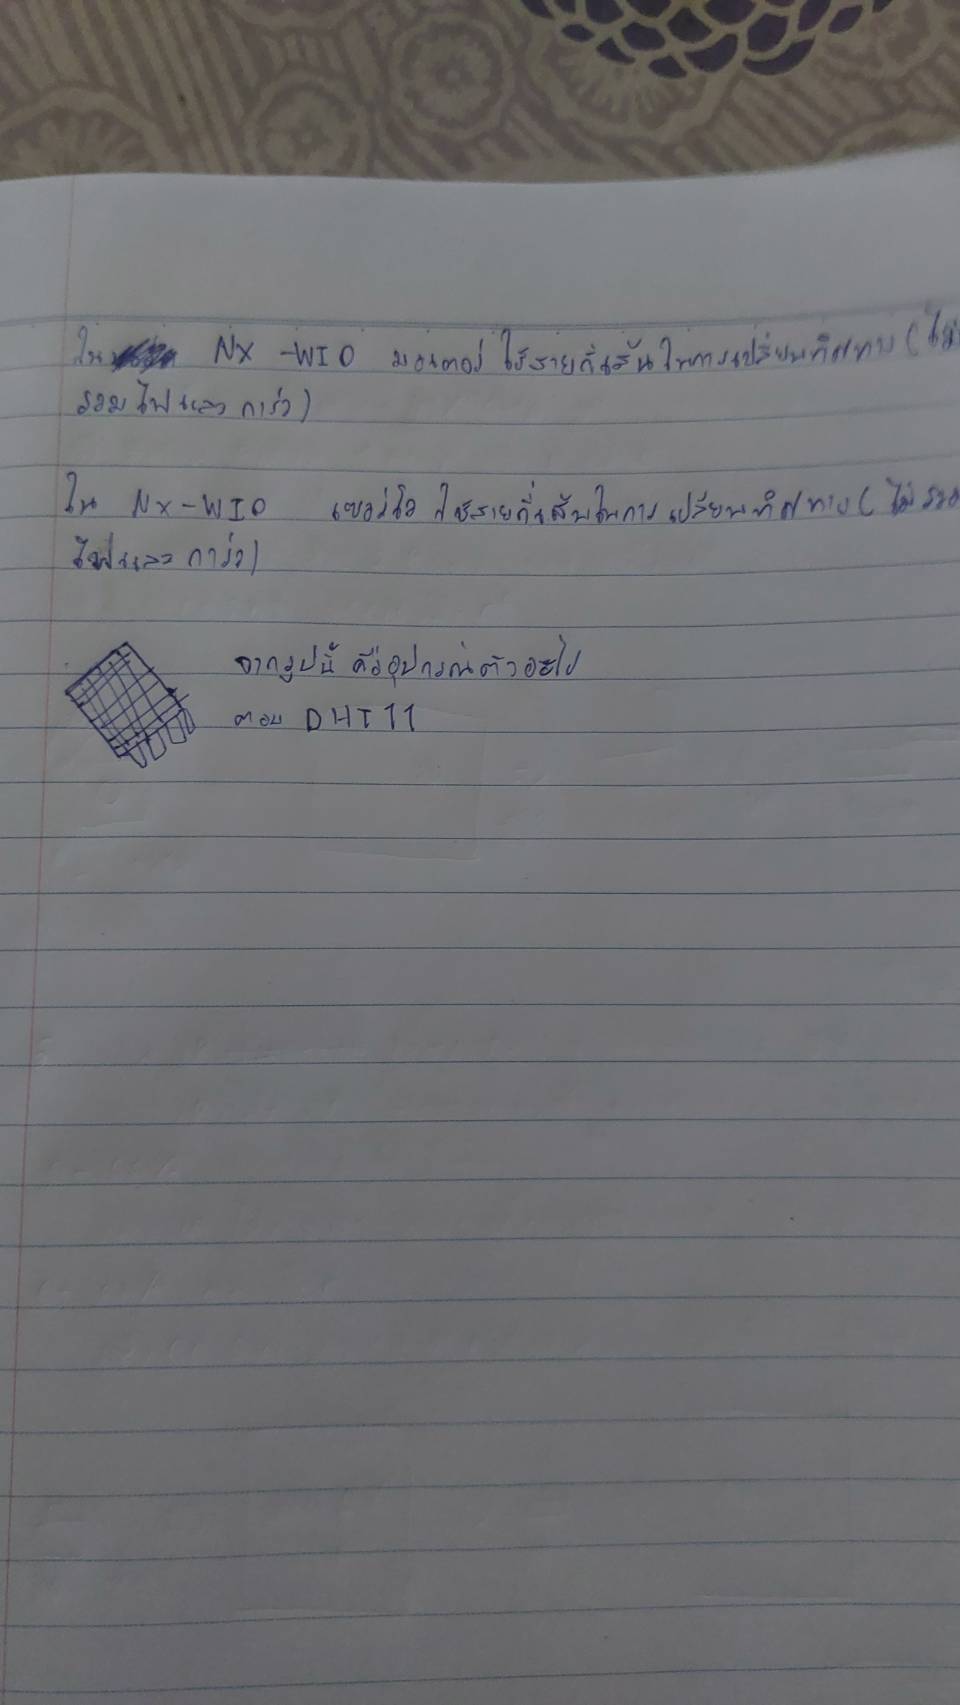 ใน NX -WIO มอเตอร์ ใช้สายกี่เส้น ในการเปลี่ยนทิศทาง ( ไม่
รวมไฟและ กาว์ว )
ใน NX-WIO เซอร์โว ใช้สายกี่เส้นในการ เปลี่ยนทิศทาง ( ไม่ รวม
ไฟและ กาว์ว )
จากรูปนี้ คืออุปกรณ์ตัวอะไร
ตอบ DHT11